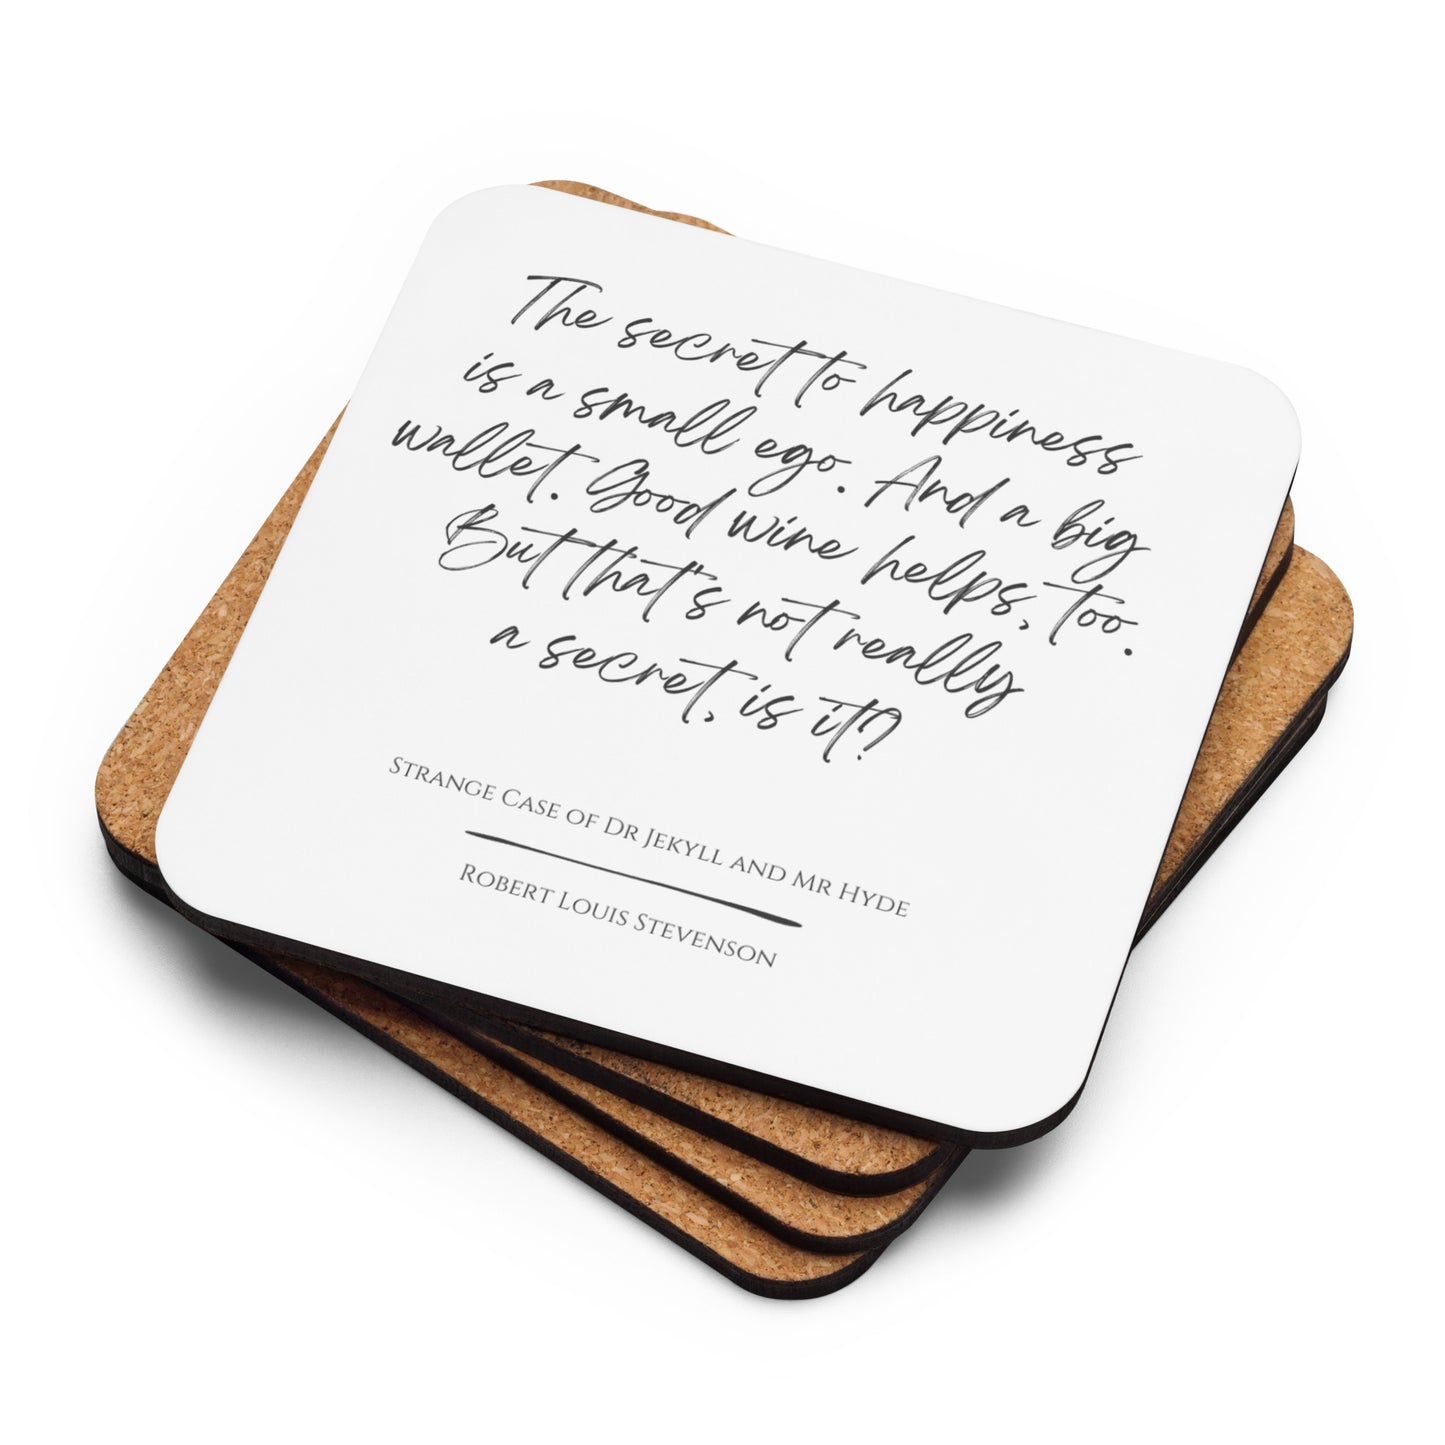 The secret to happiness
is a small ego. And a big
wallet. Good wine helps, too.
But that's not really
a secret, is it?
Strange Case of Dr Jekyll and Mr Hyde
Robert Louis Stevenson